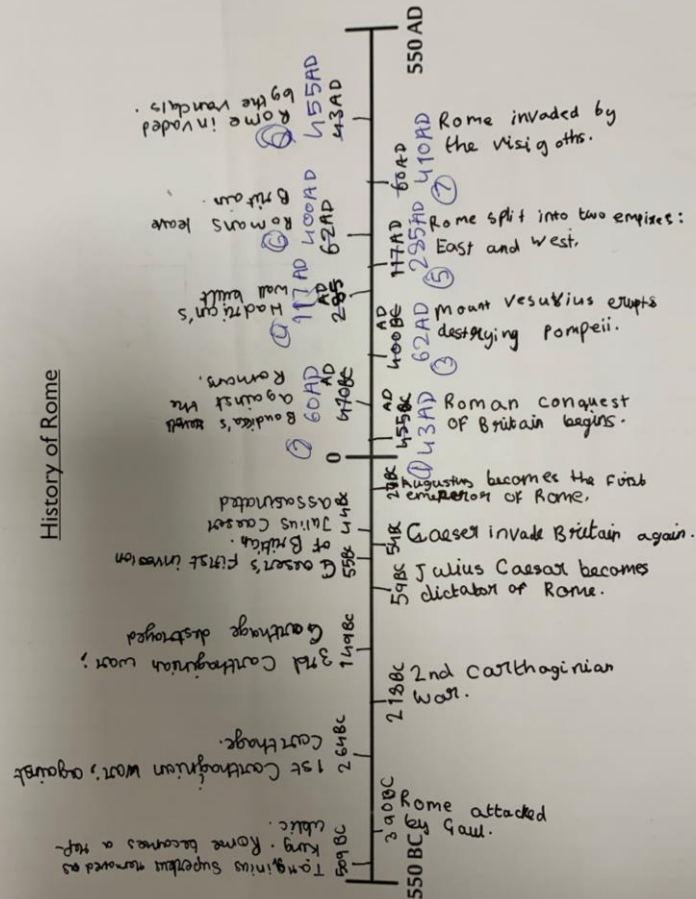 History of Rome
550 BC
509 BC
Tarquinius Superbus removed as
king. Rome becomes a rep-
ublic.
390BC
Rome attacked
by Gaul.
264BC
1st Carthaginian war; against
Carthage.
218BC
2nd Carthaginian
war.
149BC
3rd Carthaginian war;
Carthage destroyed
59BC
Julius Caesar becomes
dictator of Rome.
55BC
Caeser's First invasion
of Britian.
54BC
Caeser invade Britain again.
44BC
Julius Caeser
assasinated
27BC
Augustus becomes the first
emeperor of Rome.
0
455BC
AD
① 43AD
Roman conquest
of Britain begins.
470BC
AD
② 60AD
Boudika's revolt
against the
Romans.
400BC
AD
③ 62AD
Mount Vesuvius erupts
destrying Pompeii.
285
AD
④ 117AD
Hadrian's
wall built
117AD
⑤ 285AD
Rome split into two empires:
East and West.
62AD
⑥ 400AD
Romans leave
Britain.
60AD
⑦ 410AD
Rome invaded by
the visigoths.
43AD
455AD
Rome invaded
by the vandals.
550 AD